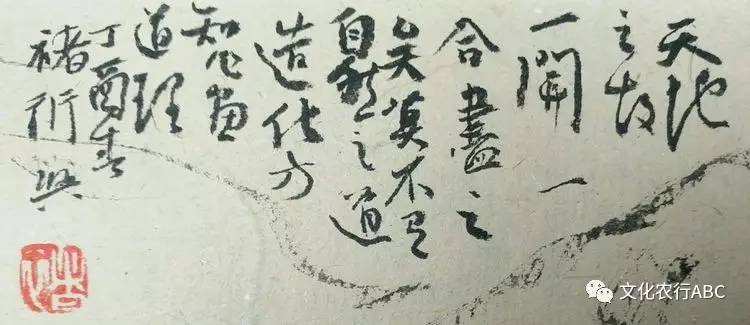 天地
之故
一開一
合盡之
矣莫不有
自然之道
造化方
知作画
道理
丁酉春
褚衍兴
文化农行ABC